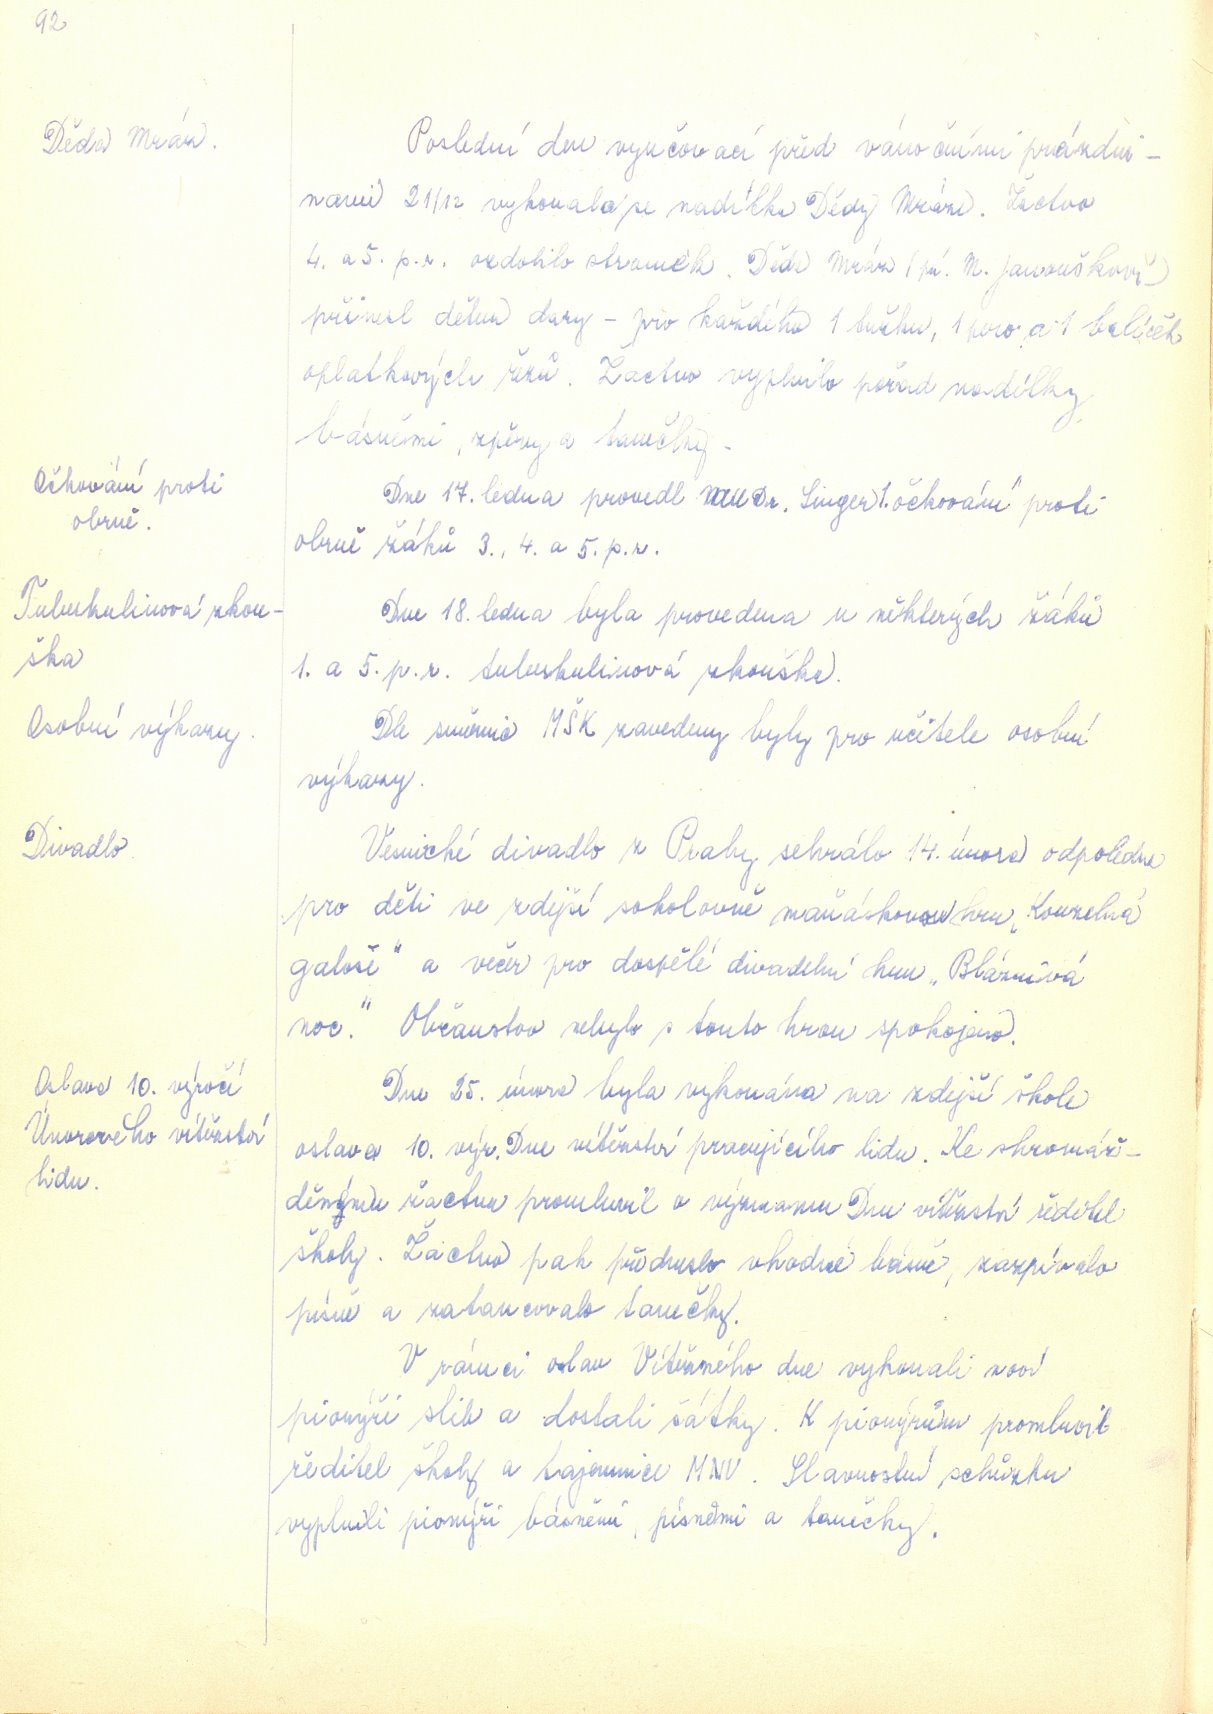 92
Děda Mráz.
Poslední den vyučovací před vánočními prázdni-
nami 21/12 vykonala se nadílka Dědy Mráze. Žactvo
4. a 5. p. r. ozdobilo stromek. Děda Mráz (pí. M. Janoušková)
přinesl dětem dary – pro každého 1 tužku, 1 pero a 1 balíček
oplatkových řezů. Žactvo vyplnilo pořad nadílky
básněmi, zpěvy a tanečky.
Očkování proti
obrně.
Dne 17. ledna provedl MUDr. Singer 1. očkování proti
obrně žáků 3., 4. a 5. p. r.
Tuberkulinová zkou-
ška
Dne 18. ledna byla provedena u některých žáků
1. a 5. p. r. tuberkulinová zkouška.
Osobní výkazy.
Dle směrnic MŠK zavedeny byly pro učitele osobní
výkazy.
Divadlo
Vesnické divadlo z Prahy sehrálo 14. února odpoledne
pro děti ve zdejší sokolovně maňáskovou hru „Kouzelná
galoše" a večer pro dospělé divadelní hru „Bláznivá
noc." Občanstvo nebylo s touto hrou spokojeno.
Oslava 10. výročí
Únorového vítězství
lidu.
Dne 25. února byla vykonána na zdejší škole
oslava 10. výr. Dne vítězství pracujícího lidu. Ke shromáž-
děnému žactvu promluvil o významu Dne vítězství ředitel
školy. Žactvo pak předneslo vhodné básně, zazpívalo
písně a zatancovalo tanečky.
V rámci oslav Vítězného dne vykonali noví
pionýři slib a dostali šátky. K pionýrům promluvil
ředitel školy a tajemnice MNV. Slavnostní schůzku
vyplnili pionýři básněmi, písněmi a tanečky.